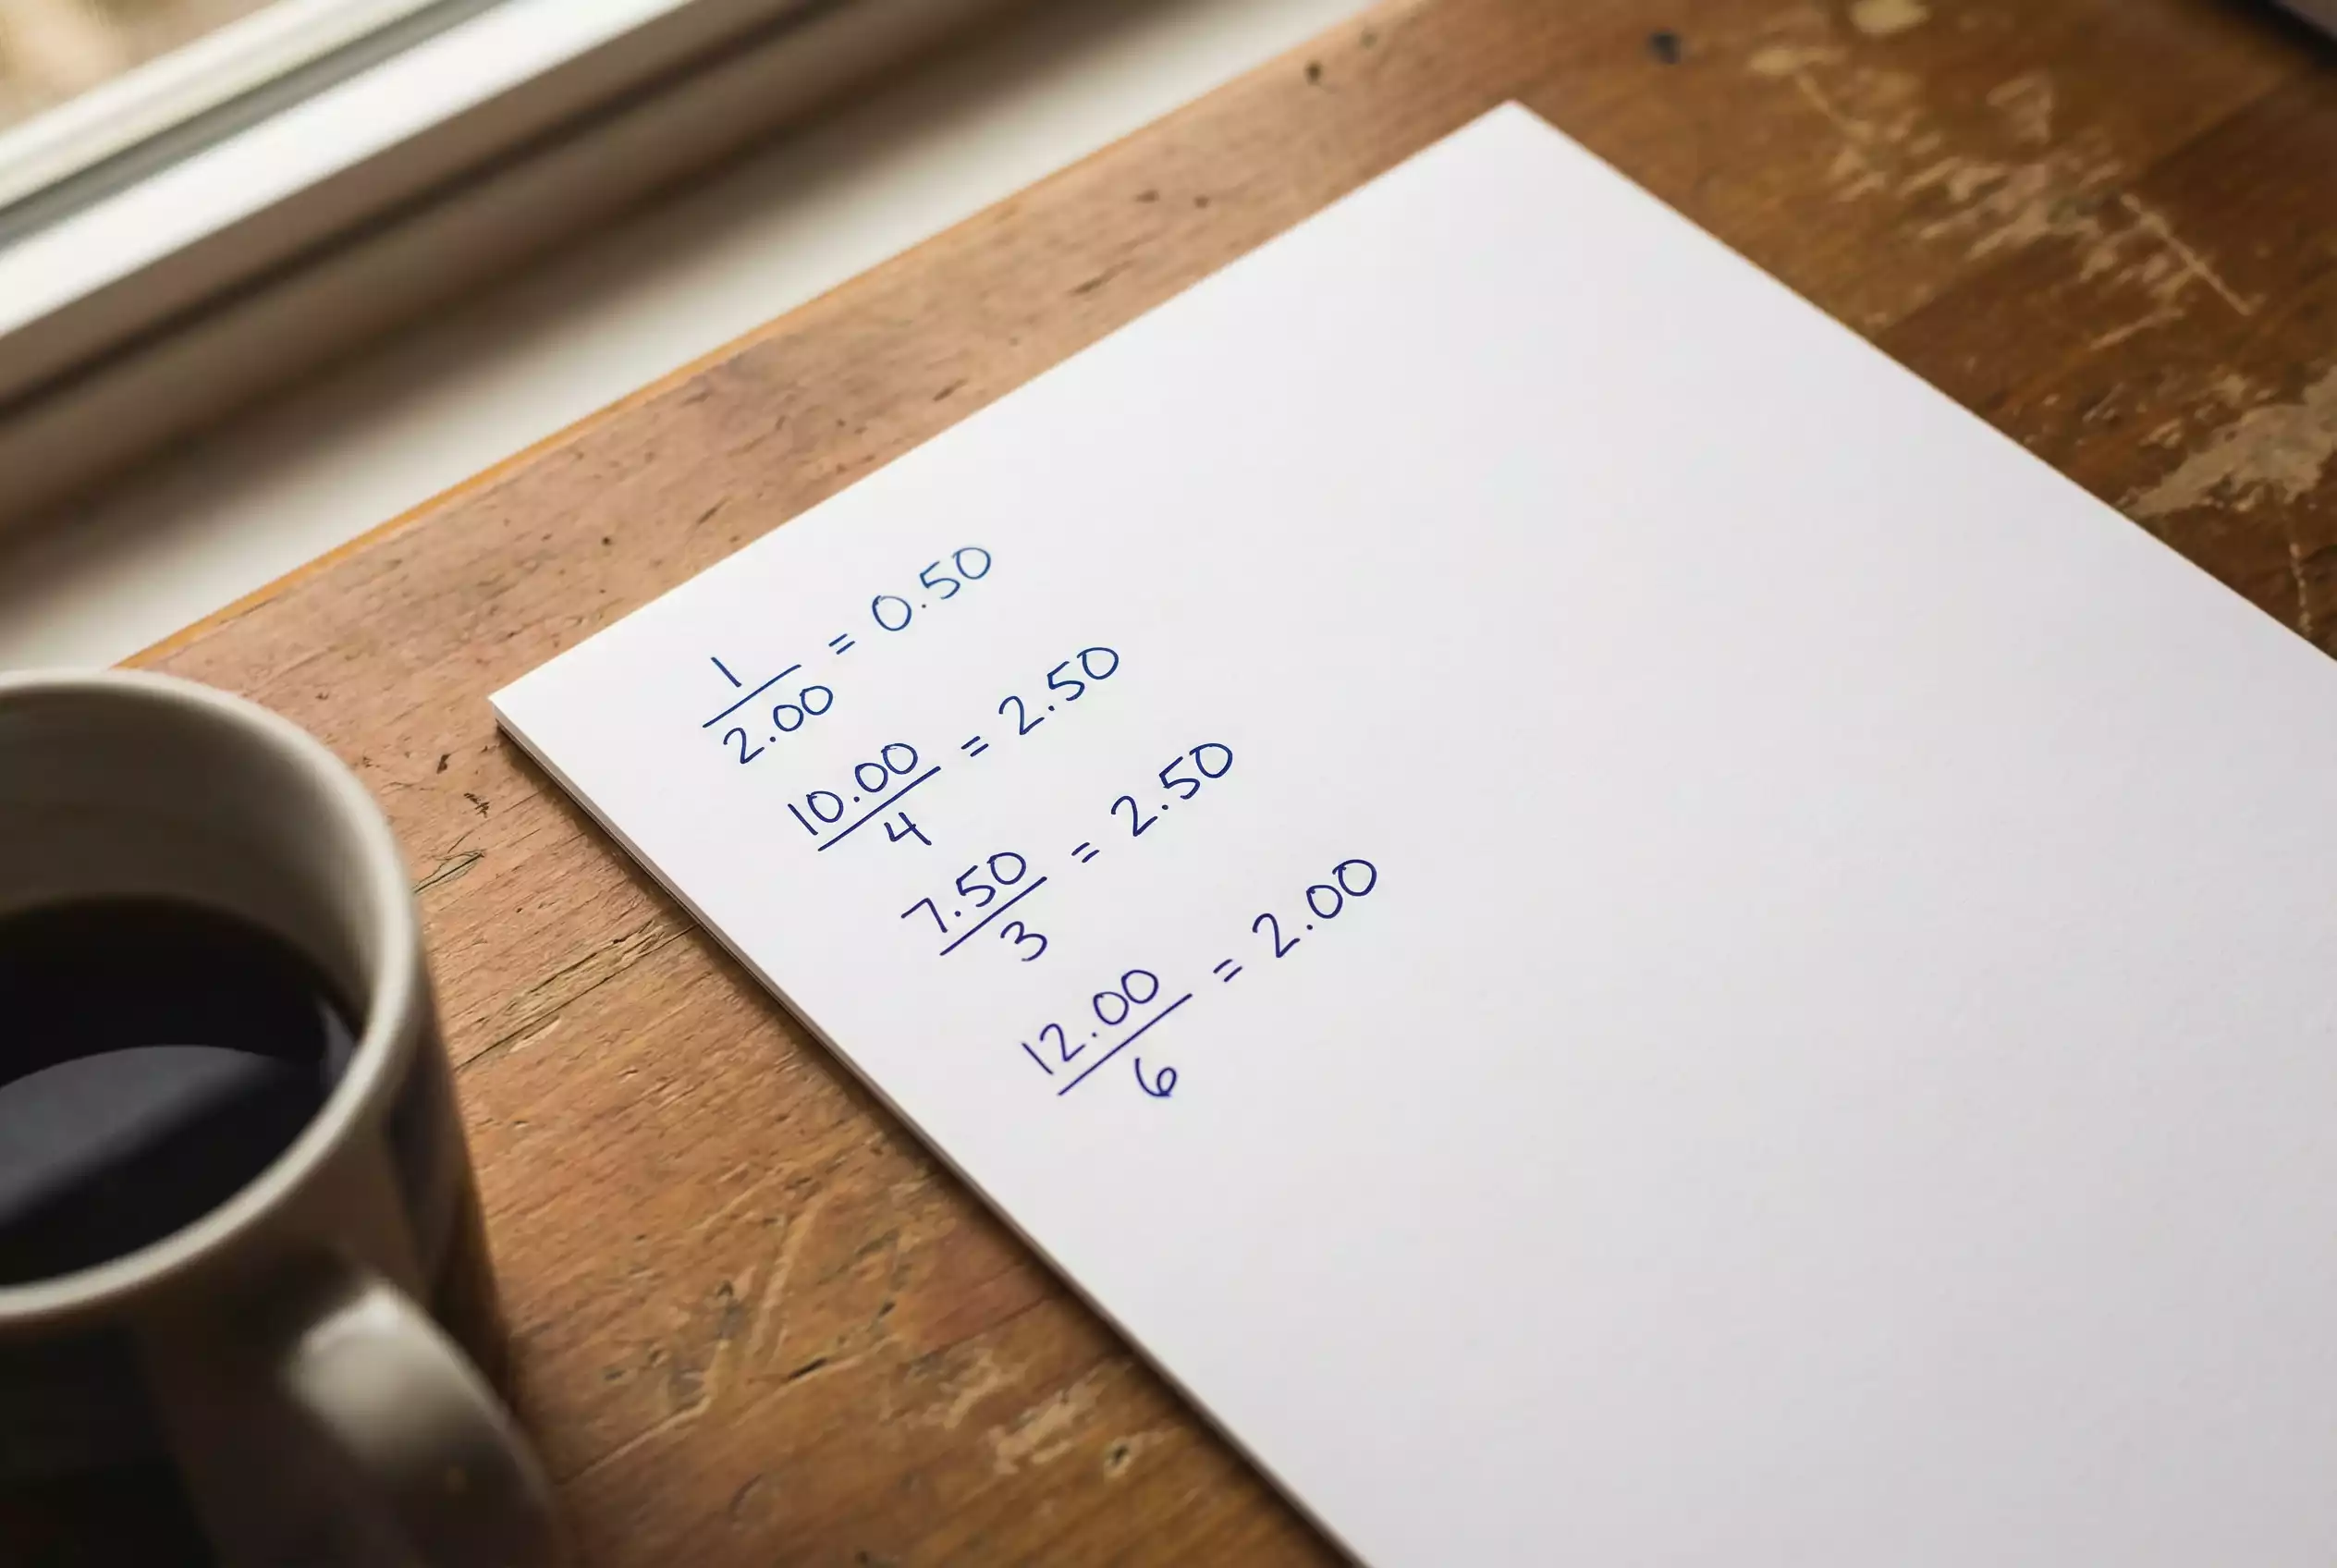 1/2.00 = 0.50
10.00/4 = 2.50
7.50/3 = 2.50
12.00/6 = 2.00